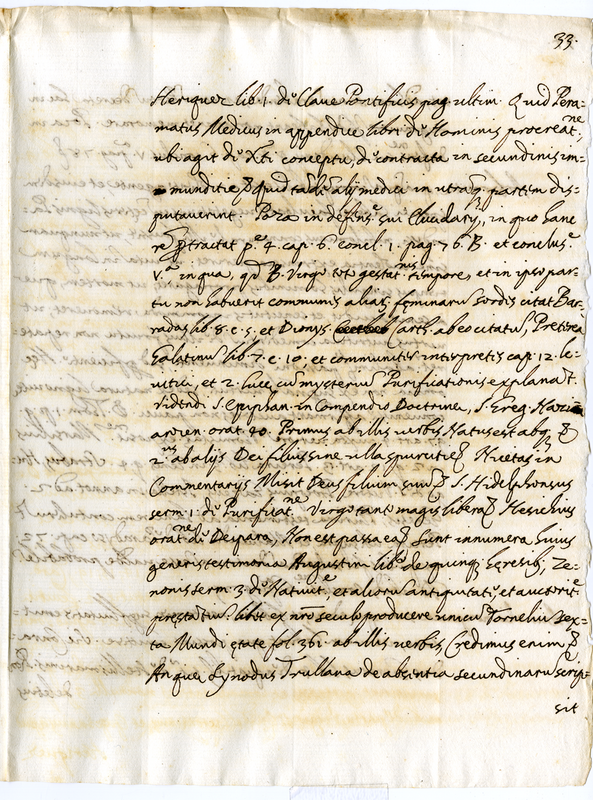 33.
Heriquez lib. 1. de Claue Pontificis pag. ultim. Quid Pera=
matus Medicus in appendice libri de Hominis procreat.ne
ubi agit de Xti conceptu, de contracta in secundinis im=
munditie & quid tales alij medici in utramq. partem dis=
putauerint. Poza in defens.e sui Elucidarij, in quo hanc
rem pertractat p.e 4. cap. 6. concl. 1. pag. 76. B. et conclus.e
V.a in qua, qd B. Virgo tot gestat.nis tempore, et in ipso par=
tu non habuerit communis alias feminarum sordis citat Bar=
radas lib. 8. c. 5. et Dionys. Carth. ab eo citatus, Preterea
Galatinus lib. 7. c. 10. et communiter interpretes cap. 12. le=
uitici, et 2. Lucę, cum mysterium Purificationis explanant.
Videndi S. Epiphan. in Compendio Doctrinę, S. Greg. Nazian
orat. 40. Primus ab illis uerbis Natus est absq. &
2.us ab alijs Dei filius sine ulla spurcitie & Nicetas in
Commentarijs Misit Deus filium suum & S. Hidelphonsus
serm. 1. de Purificat.ne Virgo tanto magis libera & Hesichius
orat.ne de Deipara, Non est passa ea & Sunt innumera huius
generis testimonia Augustini lib.o de quinq. Heresib., Ze=
nonis serm. 3. de Natiuit.e, et aliorum antiquitate, et auctorit.e
prestantium libet ex nro seculo producere unicum Tornelium sex=
ta Mundi ętate fol. 361. ab illis uerbis Credimus enim &
An quę Synodus Trullana de absentia secundinarum scrip=
sit